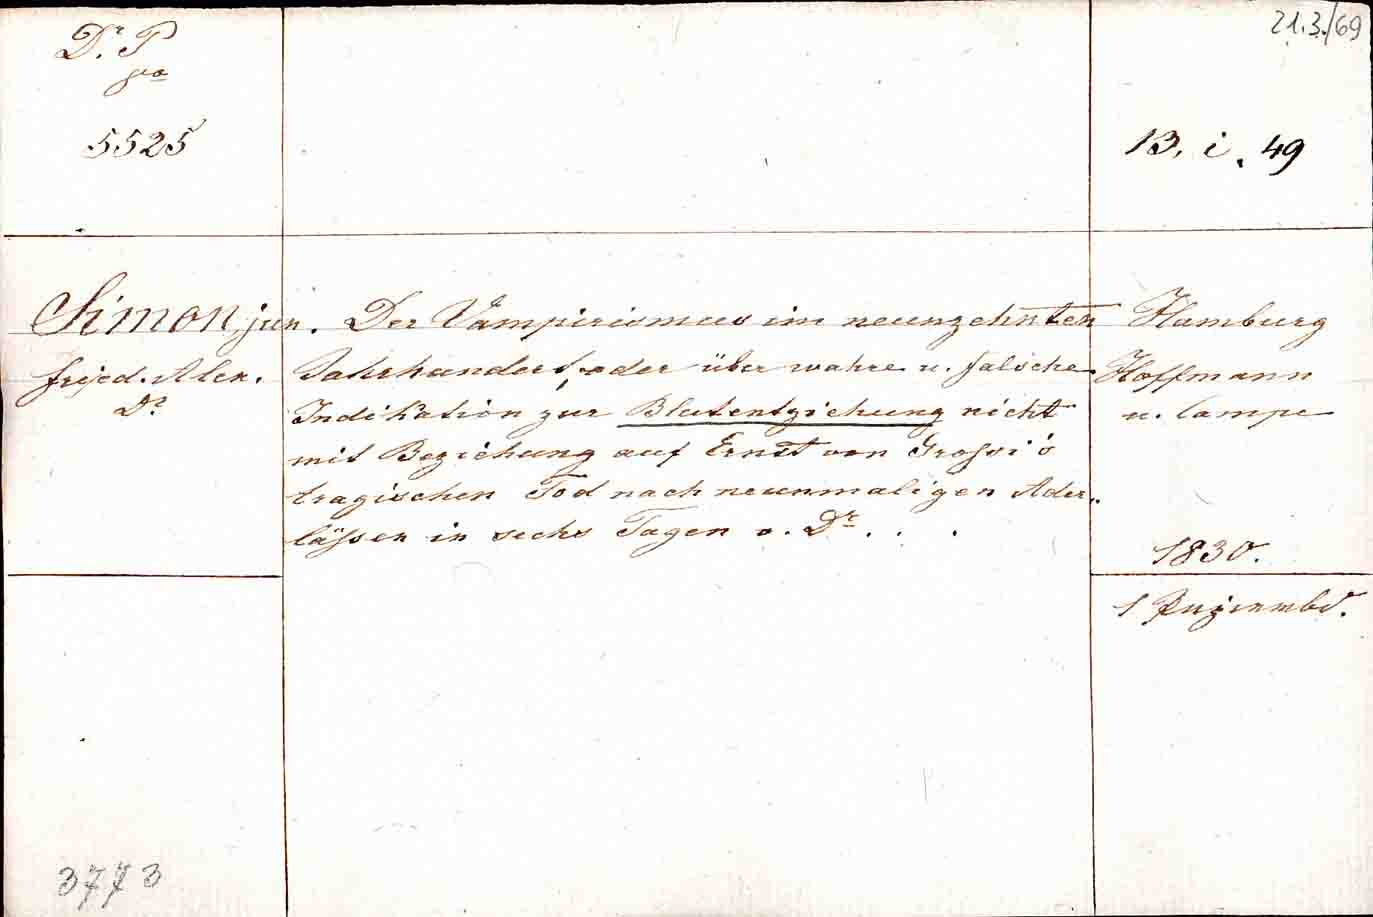 21.3./69
Dr. P
5525
13. i. 49
Simon jun. Der Vampirismus im neunzehnten Hamburg
Fried. Alex. Jahrhundert, oder über wahre u. falsche Hoffmann
Dr Indikation zur Blutentziehung nicht u. Campe
mit Beziehung auf Ernst von Grossi's
tragischen Tod nach neunmaligen Ader-
lässen in sechs Tagen v. Dr. . . .
1830.
1 Papiermbd.
3773